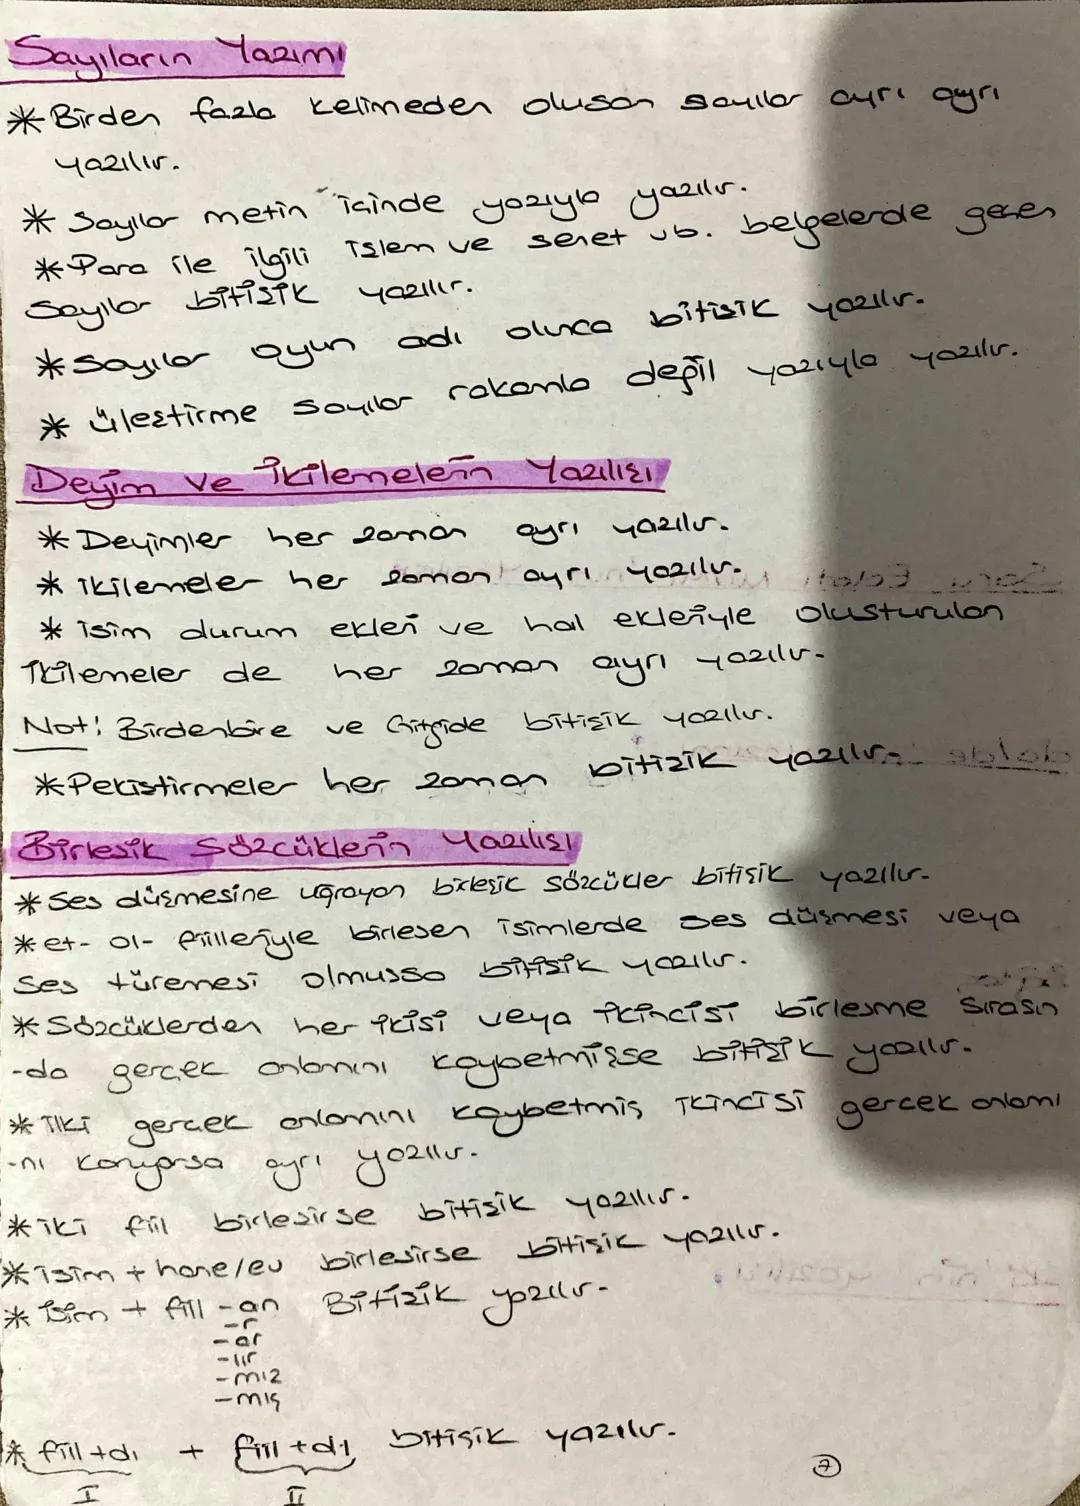 Sayıların Yazımı
* Birden fazla kelimeden oluşan sayılar ayrı ayrı
yazılır.
* Sayılar metin içinde yazıyla yazılır.
* Para ile ilgili işlem ve senet vb. belgelerde geçen
Sayılar bitişik yazılır.
* Sayılar oyun adı olunca bitişik yazılır.
* Üleştirme sayılar rakamla değil yazıyla yazılır.
Deyim ve İkilemelerin Yazılışı
* Deyimler her zaman ayrı yazılır.
* ikilemeler her zaman ayrı yazılır.
* isim durum ekleri ve hal ekleriyle oluşturulan
ikilemeler de her zaman ayrı yazılır.
Not: Birdenbire ve Gitgide bitişik yazılır.
* Pekiştirmeler her zaman bitişik yazılır.
Birleşik Sözcüklerin Yazılışı
* Ses düşmesine uğrayan birleşik sözcükler bitişik yazılır.
* et- ol- fiilleriyle birleşen isimlerde ses düşmesi veya
ses türemesi olmuşsa bitişik yazılır.
* Sözcüklerden her ikisi veya ikincisi birleşme sırasın
-da gerçek anlamını kaybetmişse bitişik yazılır.
* ilki gerçek anlamını kaybetmiş ikincisi gerçek anlamı
-nı koruyorsa ayrı yazılır.
* iki fiil birleşirse bitişik yazılır.
* isim + hane/ev birleşirse bitişik yazılır.
* isim + fiil -an Bitişik yazılır.
-r
-ar
-lır
-mız
-mış
* fiil+dı + fiil+dı bitişik yazılır.
I II
7